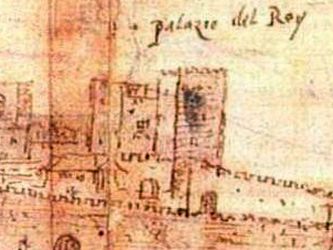 palazio del Rey